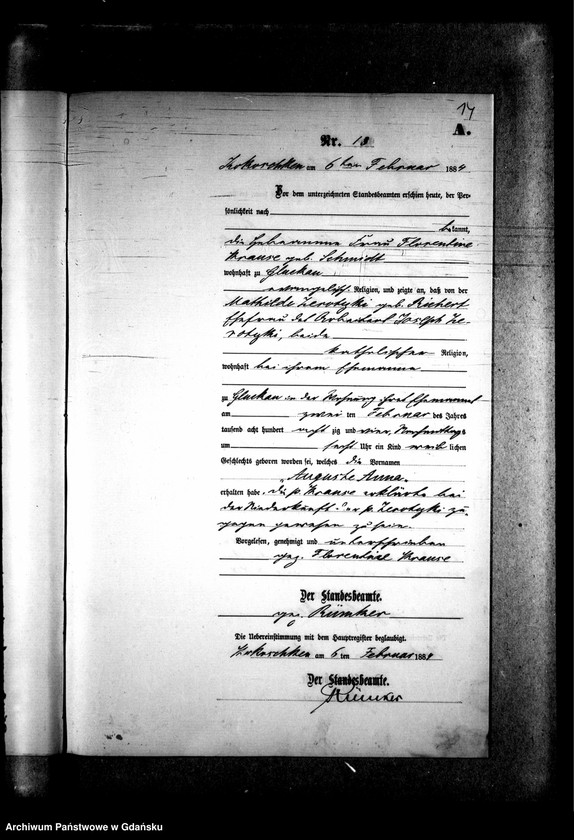 14
A.
Nr. 18
Kokoschken am 6ten Februar 1884
Vor dem unterzeichneten Standesbeamten erschien heute, der Per-
sönlichkeit nach
bekannt,
die Hebeamme Frau Florentine
Krause geb. Schmidt
wohnhaft zu Gluckau
evangelischer Religion, und zeigte an, daß von der
Mathilde Zerotzki geb. Richert
Ehefrau des Arbeiters Joseph Ze-
rotzki, beide
katholischer Religion,
wohnhaft bei ihrem Ehemanne
zu Gluckau in der Wohnung ihres Ehemannes
am zwei ten Februar des Jahres
tausend acht hundert acht zig und vier, Nachmittags
um sechs Uhr ein Kind weib lichen
Geschlechts geboren worden sei, welches die Vornamen
„Auguste Anna.
erhalten habe. Die p. Krause erklärte bei
der Niederkunft der p. Zerotzki zu-
gegen gewesen zu sein.
Vorgelesen, genehmigt und unterschrieben
gez. Florentine Krause
Der Standesbeamte.
gez. Rümker
Die Uebereinstimmung mit dem Hauptregister beglaubigt.
Kokoschken am 6 ten Februar 1884
Der Standesbeamte.
Rümker
Archiwum Państwowe w Gdańsku